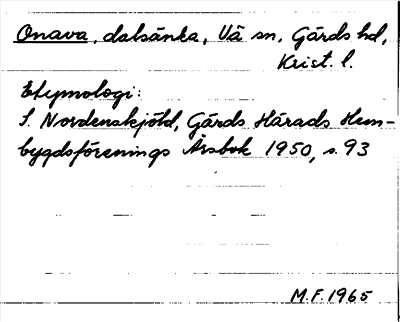 Onava, dalsänka, Vä sn, Gärds hd,
Krist. l.
Etymologi:
S. Nordenskjöld, Gärds Härads Hem-
bygdsförenings Årsbok 1950, s. 93
M.F. 1965